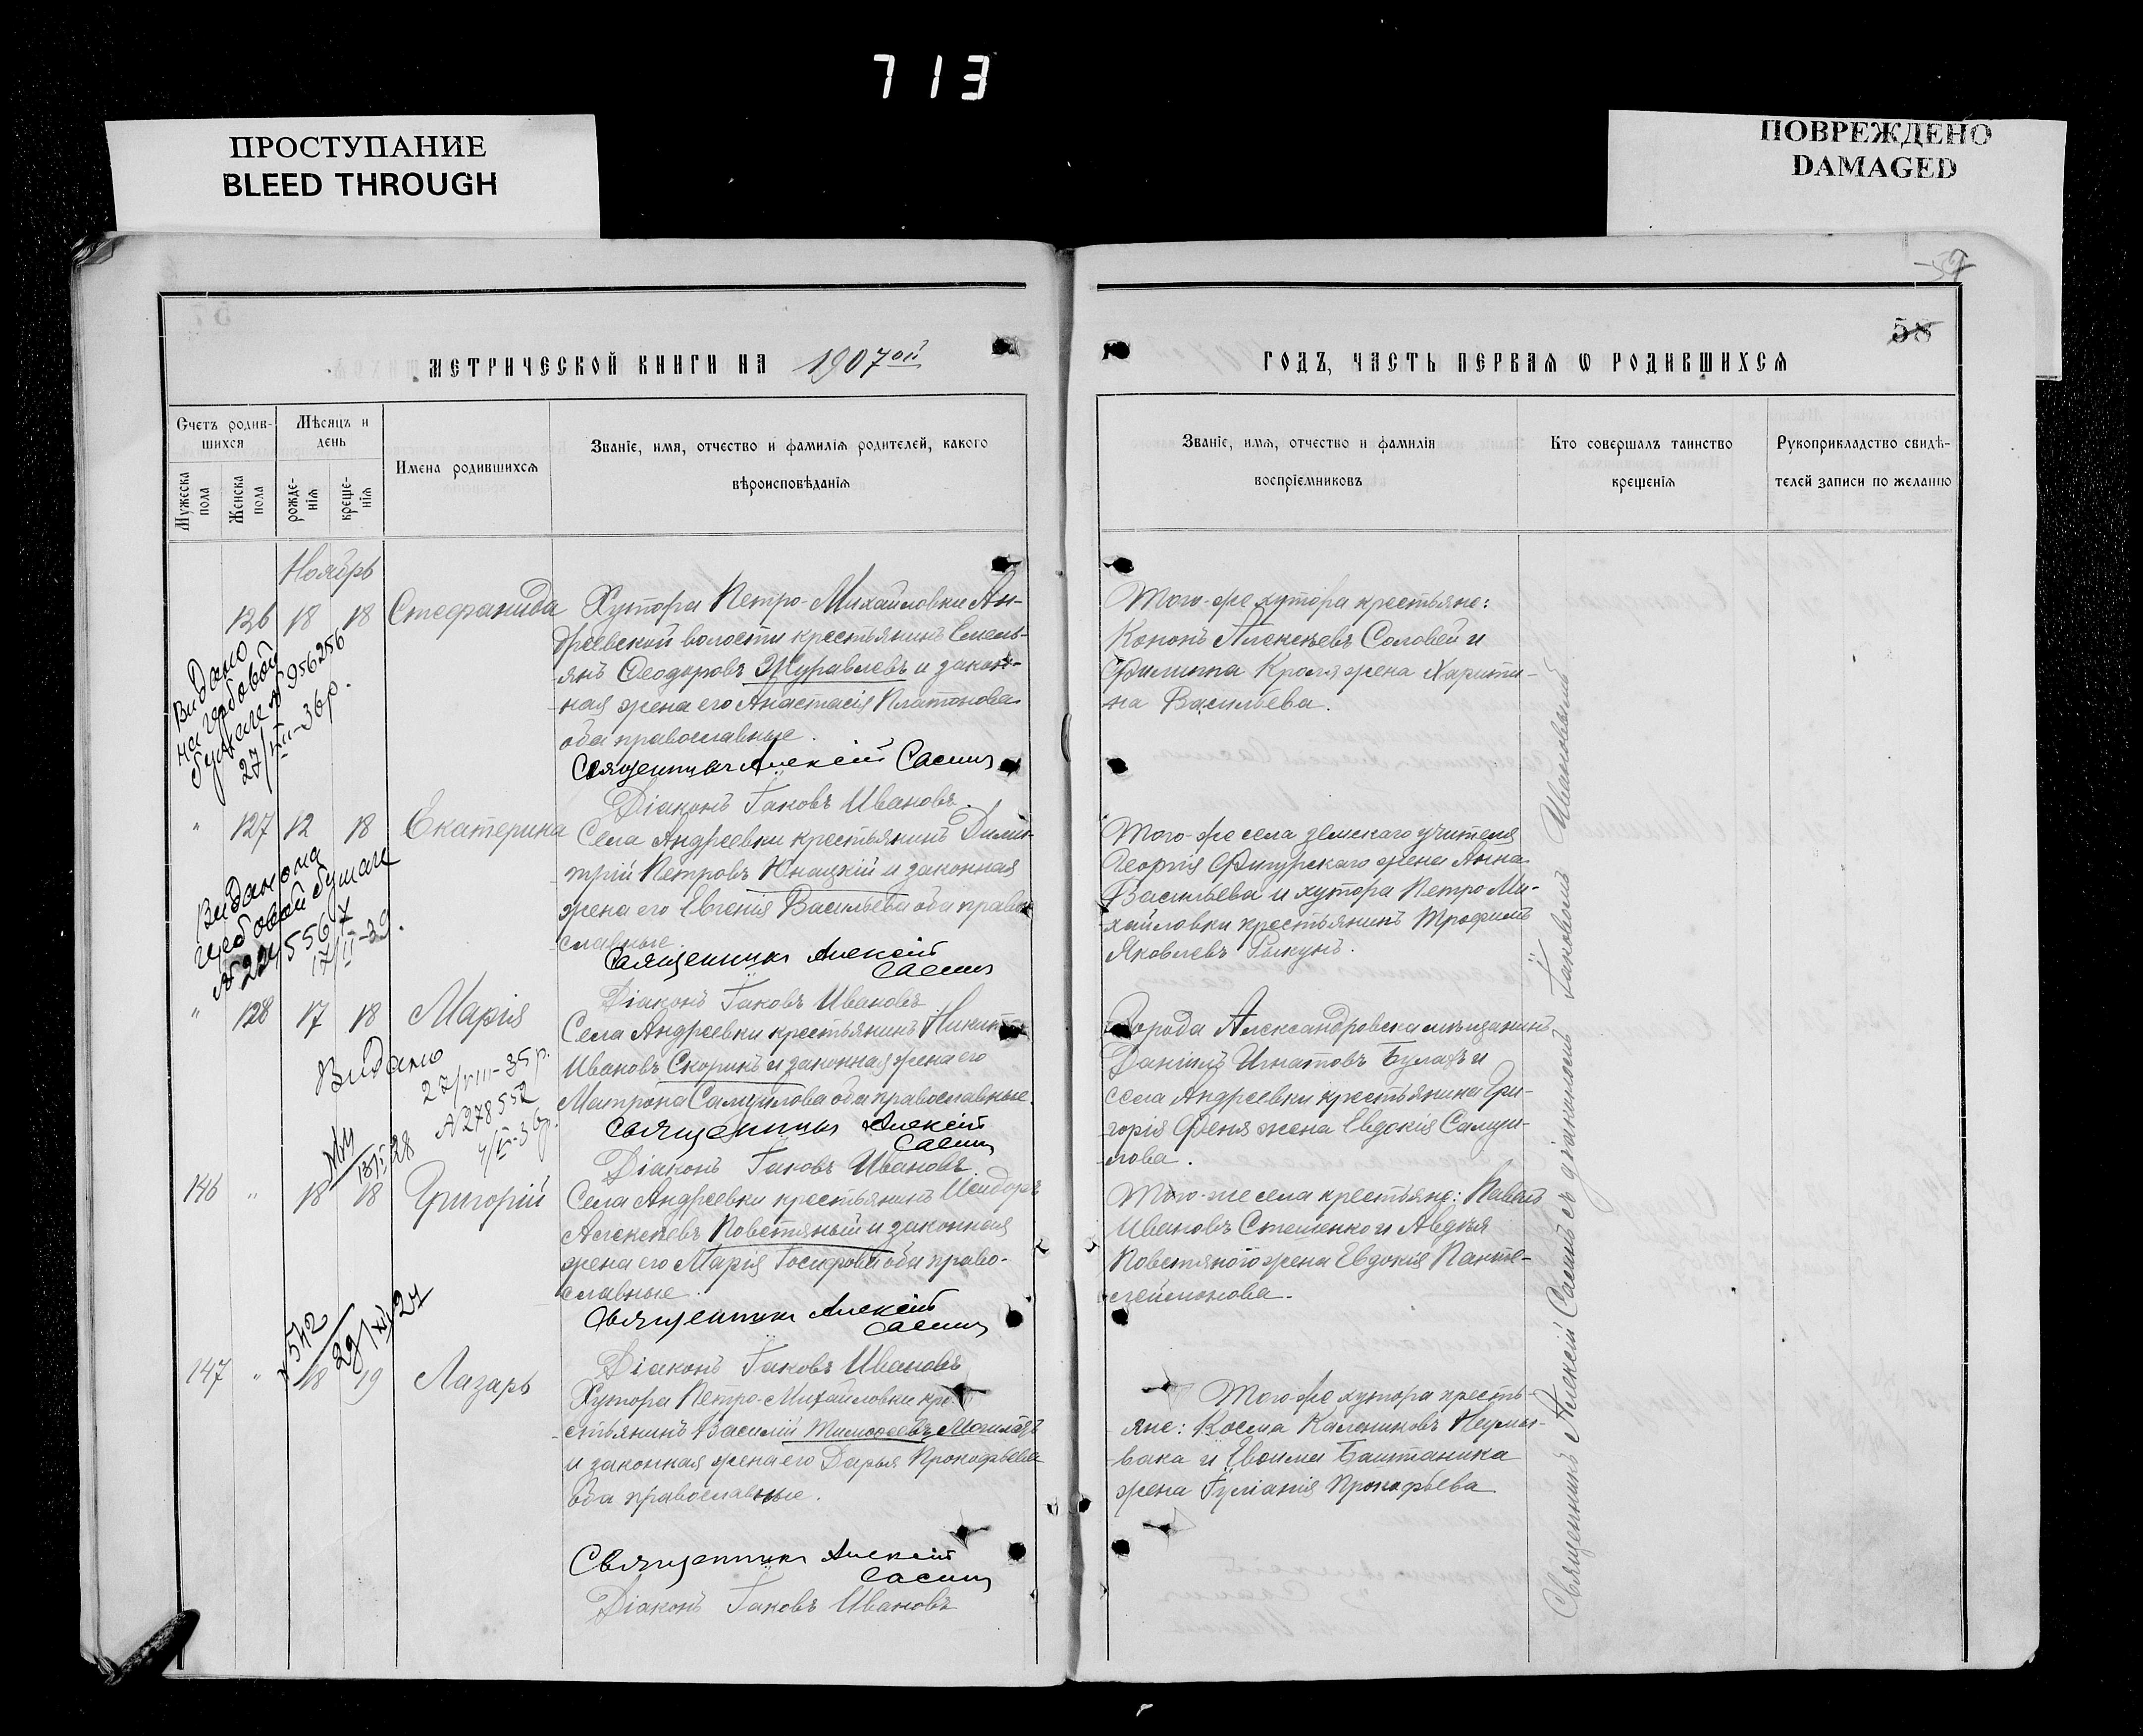 713
ПРОСТУПАНИЕ
BLEED THROUGH
ПОВРЕЖДЕНО
DAMAGED
59
58
МЕТРИЧЕСКОЙ КНИГИ НА 1907ой
ГОДЪ, ЧАСТЬ ПЕРВАЯ Ѡ РОДИВШИХСЯ
Счетъ родив-
шихся
Мужеска пола
Женска пола
Мѣсяцъ и
день
рожде-
нія
креще-
нія
Имена родившихся
Званіе, имя, отчество и фамилія родителей, какого
вѣроисповѣданія
Званіе, имя, отчество и фамилія
воспріемниковъ
Кто совершалъ таинство
крещенія
Рукоприкладство свидѣ-
телей записи по желанію
Ноябрь
126 18 18 Стефанида
Хутора Петро-Михайловки Ан-
дреевской волости крестьянинъ Емель-
янъ Ѳеодоровъ Журавлевъ и закон-
ная жена его Анастасія Платонова
оба православные.
Священникъ Алексій Сасинъ
Діаконъ Іаковъ Ивановъ.
Того-же хутора крестьяне:
Кононъ Алексѣевъ Соловей и
Филиппа Кроля жена Харити-
на Васильева.
Видано
на гербовой
бумаге № 956256
27/XII-36р.
" 127 12 18 Екатерина
Села Андреевки крестьянинъ Дими-
трій Петровъ Юнацкій и законная
жена его Евгенія Васильева оба право-
славные.
Священникъ Алексій
Сасинъ
Діаконъ Іаковъ Ивановъ
Того-же села земскаго учителя
Георгія Фигурскаго жена Анна
Васильева и хутора Петро-Ми-
хайловки крестьянинъ Трофимъ
Яковлевъ Рыкунъ.
Видано на
гербовой бумаге
17/II-39.
" 128 17 18 Марія
Села Андреевки крестьянинъ Никита
Ивановъ Скорикъ и законная жена его
Матрона Самуилова оба православные.
Священникъ Алексій
Сасинъ
Діаконъ Іаковъ Ивановъ.
Города Александровска мѣщанинъ
Даніилъ Игнатовъ Булахъ и
села Андреевки крестьянина Гри-
горія Феня жена Евдокія Самуи-
лова.
Видано
27/VIII-35р.
N 278552
146 " 18 18 Григорій
Села Андреевки крестьянинъ Исидоръ
Алексѣевъ Повстяный и законная
жена его Марія Іосифова оба право-
славные.
Священникъ Алексій
Сасинъ
Діаконъ Іаковъ Ивановъ
Того-же села крестьяне: Павелъ
Ивановъ Стешенко и Авдѣя
Повстяного жена Евдокія Панте-
леймонова.
№ 542
29/XI 27
147 " 18 19 Лазарь
Хутора Петро-Михайловки кре-
стьянинъ Василій Тимофеевъ
и законная жена его Дарья Прокофьева
оба православные.
Священникъ Алексій
Сасинъ
Діаконъ Іаковъ Ивановъ
Того-же хутора кресть-
яне: Косма Калениковъ Неумы-
вака и Евѳимія Баштаника
жена Іуліанія Прокофьева
Священникъ Алексій Сасинъ съ діакономъ Іаковомъ Ивановымъ